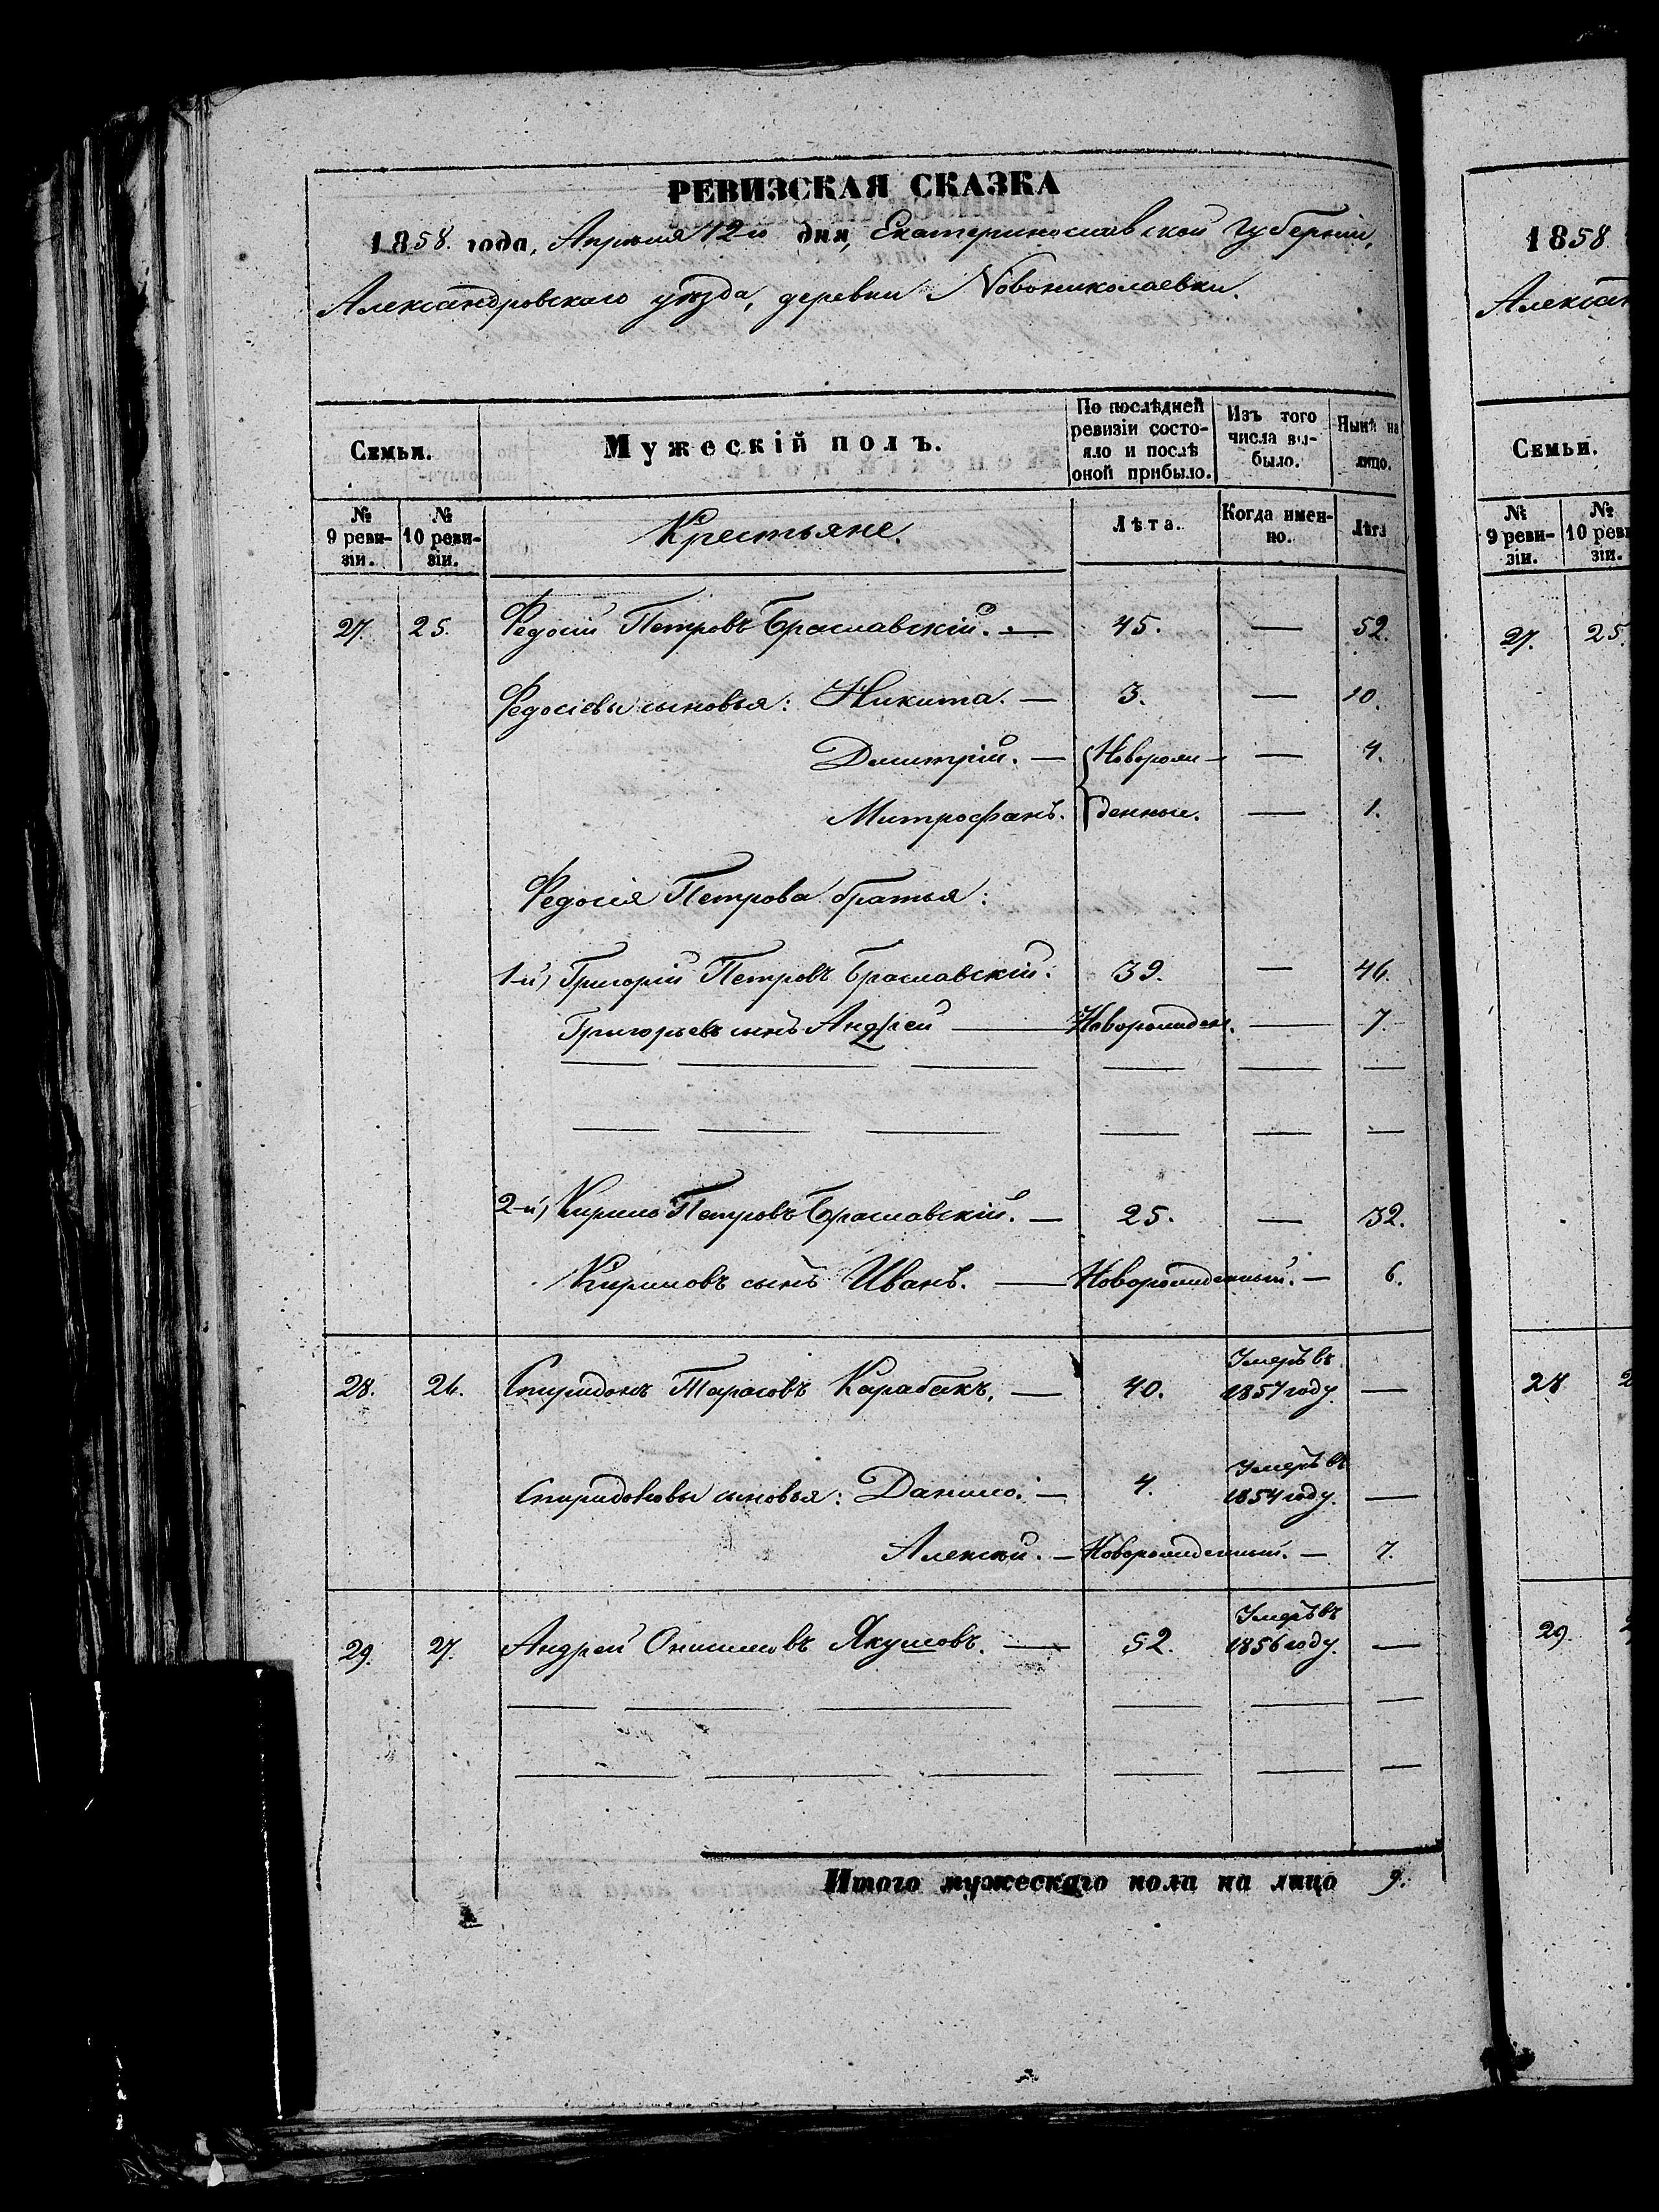 РЕВИЗСКАЯ СКАЗКА
1858. года, Апрѣля 12го дня, Екатеринославской Губерніи,
Александровскаго уѣзда, деревни Новониколаевки.
Семьи.
Мужескій полъ.
По послѣдней ревизіи состояло и послѣ оной прибыло.
Изъ того числа выбыло.
Нынѣ на лицо.
№ 9 ревизіи.
№ 10 ревизіи.
Крестьяне.
Лѣта.
Когда именно.
Лѣта
27. 25. Федосій Петровъ Браславскій. — 45. — 52.
Федосіевы сыновья: Никита. — 3. — 10.
Дмитрій. — Новорож- — 4.
Митрофанъ. денные. — 1.
Федосія Петрова братья:
1-й) Григорій Петровъ Браславскій. 39. — 46.
Григорьевъ сынъ Андрей — Новорожден. — 7
2-й) Кирило Петровъ Браславскій. — 25. — 32.
Кириловъ сынъ Иванъ. — Новорожденный. — 6.
28. 26. Спиридонъ Тарасовъ Карабакъ. — 40. Умеръ въ 1857 году. —
Спиридоновы сыновья: Данило. — 4. Умеръ въ 1854 году. —
Алексѣй. — Новорожденный. — 7.
29. 27. Андрей Онисимовъ Якушовъ. — 52. Умеръ въ 1856 году. —
Итого мужескаго пола на лицо 9.
1858
Алексан
Семьи.
№ 9 ревизіи.
№ 10 реви
зіи.
27. 25.
28 2
29. 2